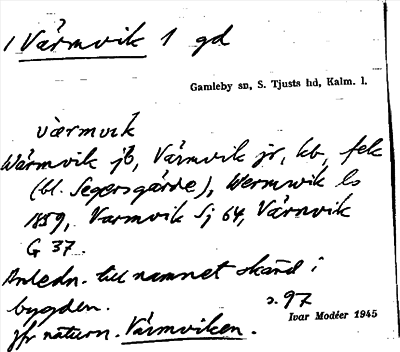 1 Värmvik 1 gd
Gamleby sn, S. Tjusts hd, Kalm. l.
värmvik
Wärmvik jb, Värmvik jr, kb, fek
(bl. Segersgärde), Wermwik ls
1859, Varmvik Sj 64, Värnvik
G 37.
Anledn. till namnet okänd i
bygden.
s. 97
Ivar Modéer 1945
Jfr naturn. Värmviken.